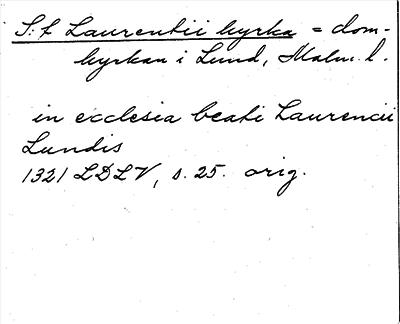 S:t Laurentii kyrka = dom-
kyrkan i Lund, Malm. l.
in ecclesia beati Laurencii
Lundis
1321 LDLV, s. 25. orig.